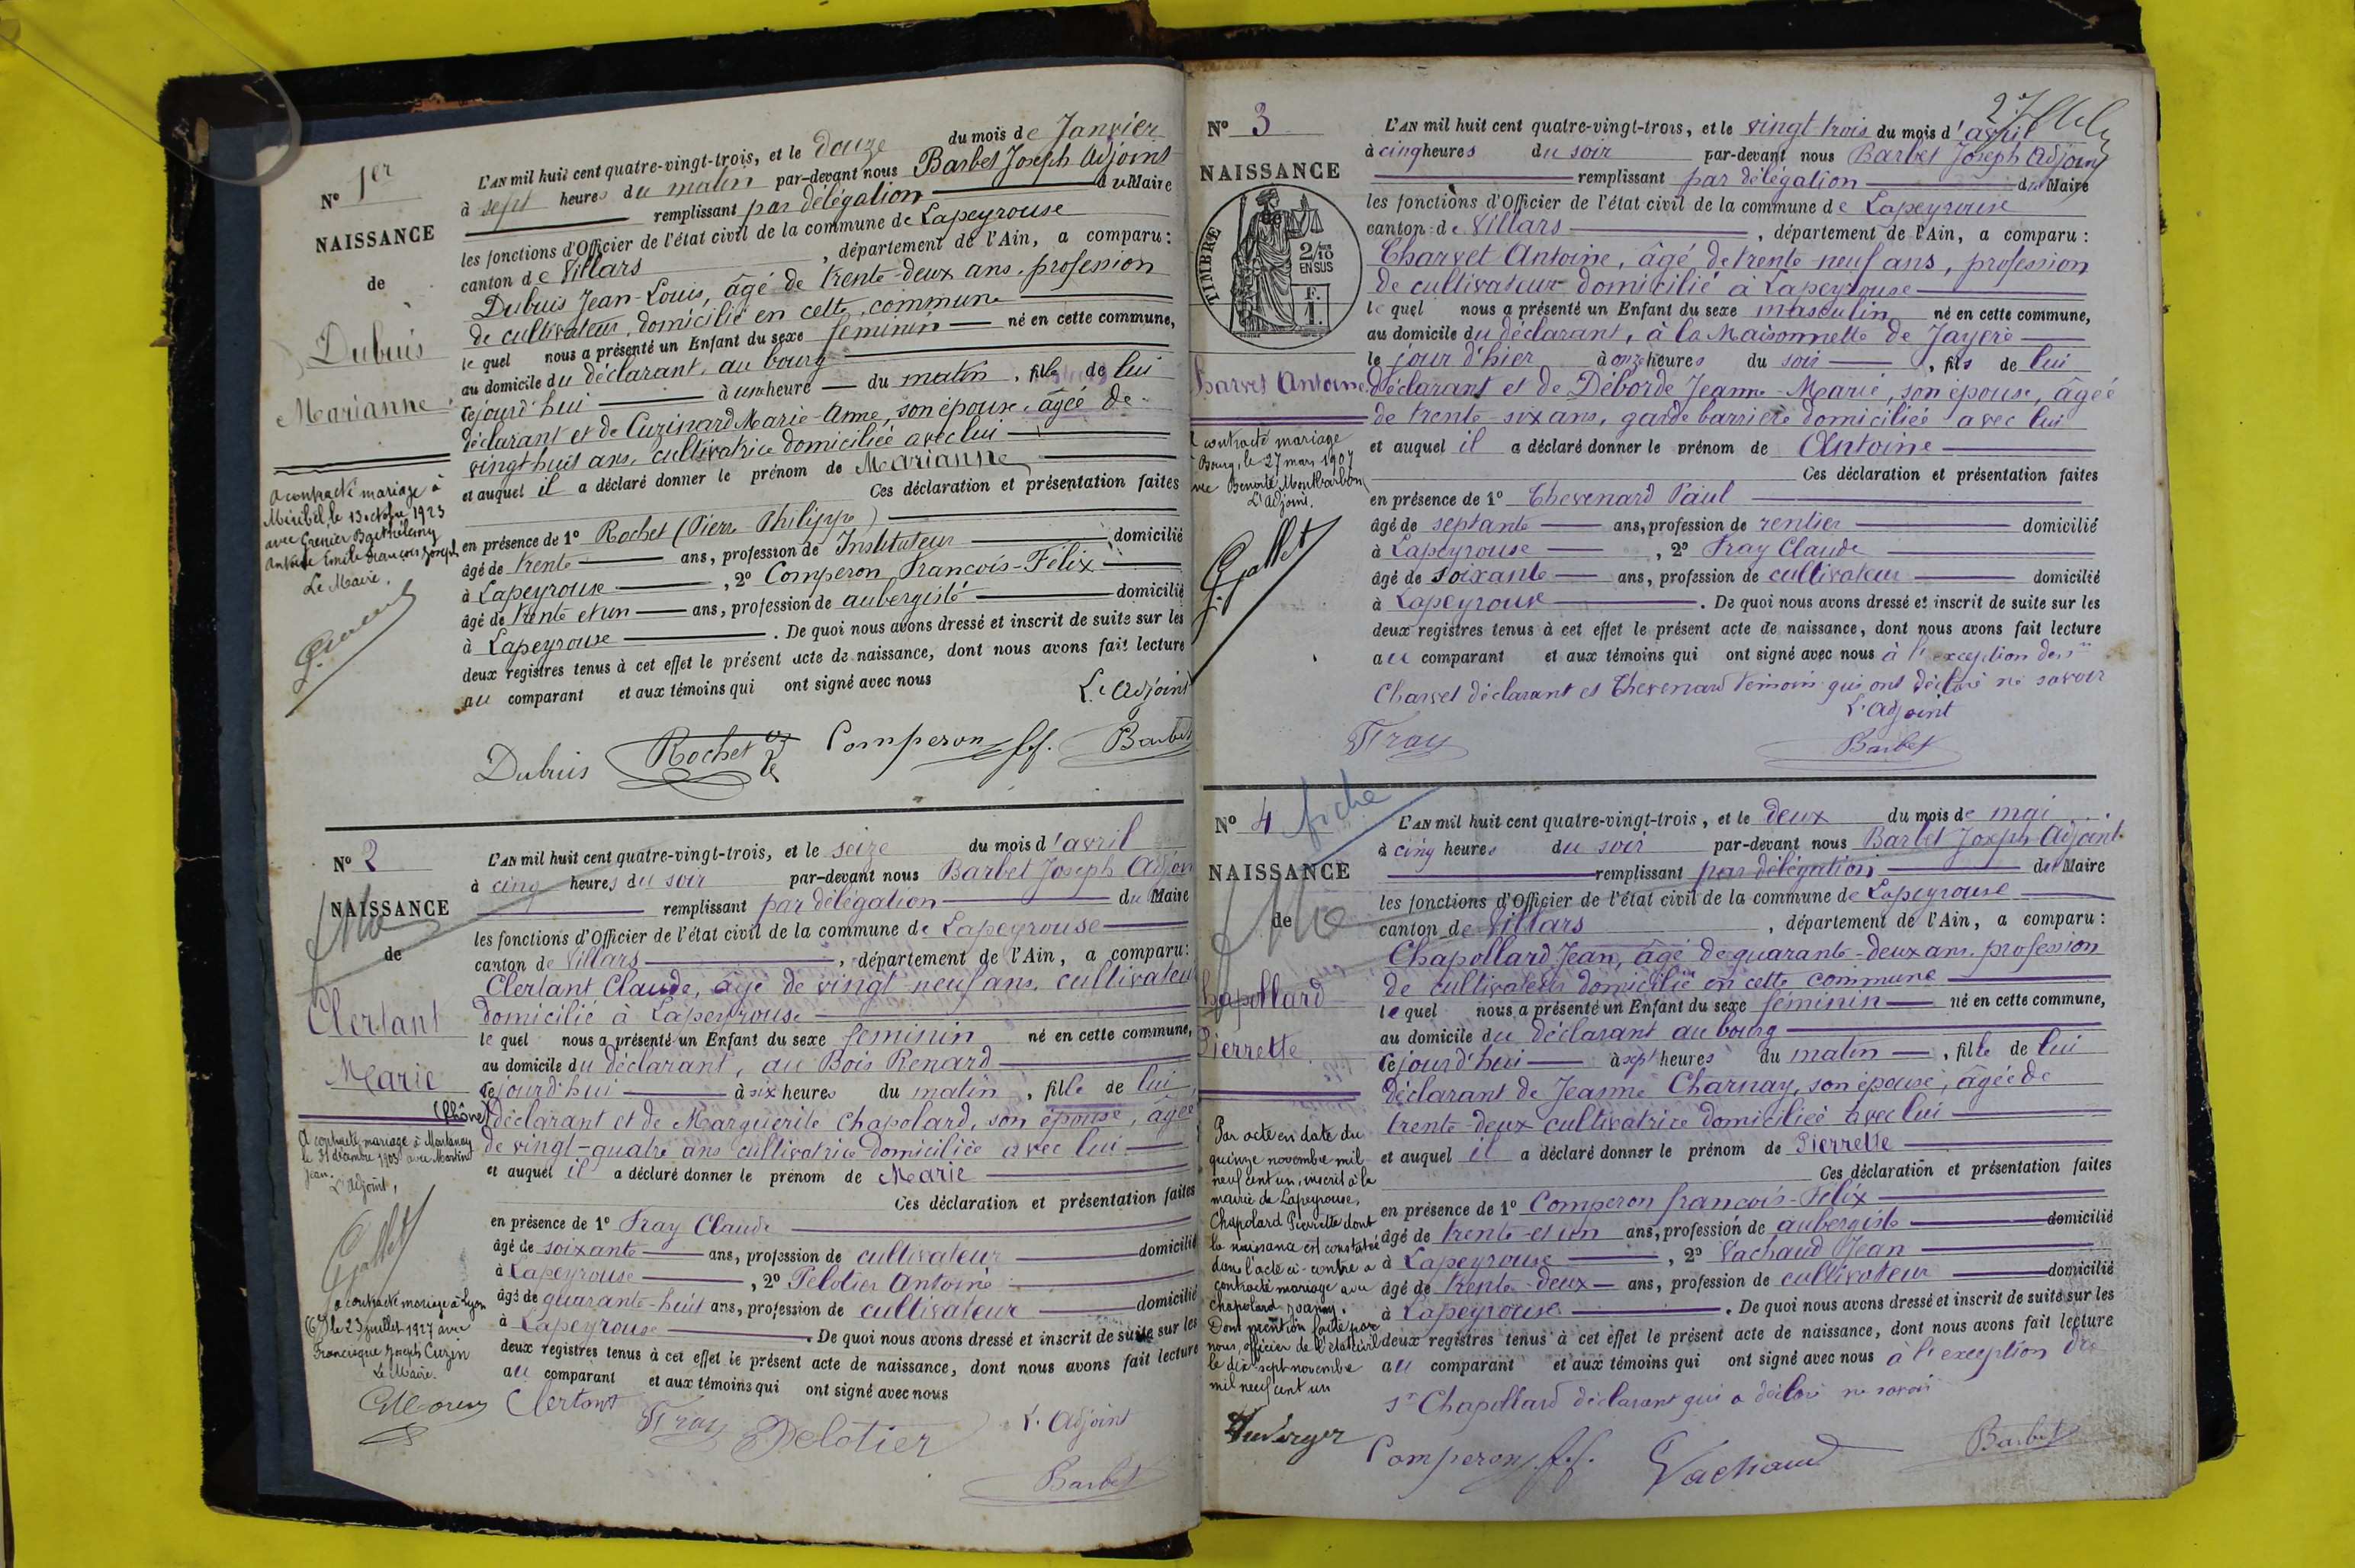 N° 1er
NAISSANCE
de
Dubuis
Marianne
a contracté mariage à
Miribel, le 13 octobre 1923
avec Grenier Barthélemy
Antoine Emile François Joseph
Le Maire,
L'AN mil huit cent quatre-vingt-trois, et le douze du mois de Janvier
à sept heures du matin par-devant nous Barbet Joseph Adjoint
remplissant par délégation du Maire
les fonctions d'Officier de l'état civil de la commune de Lapeyrouse
canton de Villars, département de l'Ain, a comparu :
Dubuis Jean-Louis, âgé de trente-deux ans, profession
de cultivateur, domicilié en cette commune
lequel nous a présenté un Enfant du sexe féminin né en cette commune,
au domicile du déclarant, au bourg
cejourd'hui à une heure du matin, fille de lui
déclarant et de Cuzinard Marie-Anne, son épouse, âgée de
vingt huit ans, cultivatrice domiciliée avec lui
et auquel il a déclaré donner le prénom de Marianne
Ces déclaration et présentation faites
en présence de 1° Rochet (Pierre Philippe)
âgé de trente ans, profession de Instituteur domicilié
à Lapeyrouse, 2° Comperon François-Félix
âgé de trente et un ans, profession de aubergiste domicilié
à Lapeyrouse. De quoi nous avons dressé et inscrit de suite sur les
deux registres tenus à cet effet le présent acte de naissance, dont nous avons fait lecture
au comparant et aux témoins qui ont signé avec nous
L'adjoint
Dubuis Rochet Comperon f.f. Barbet
N° 2
NAISSANCE
de
Clertant
Marie
(Rhône)
A contracté mariage à Montanay
le 31 décembre 1903 avec Martinet
Jean.
L'adjoint,
Gallet
a contracté mariage à Lyon
(6e) le 23 juillet 1927 avec
Francisque Joseph Cuzin
Le Maire.
L'AN mil huit cent quatre-vingt-trois, et le seize du mois d'avril
à cinq heures du soir par-devant nous Barbet Joseph Adjoin
remplissant par délégation du Maire
les fonctions d'Officier de l'état civil de la commune de Lapeyrouse
canton de Villars, département de l'Ain, a comparu :
Clertant Claude, âgé de vingt-neuf ans, cultivateur
domicilié à Lapeyrouse
lequel nous a présenté un Enfant du sexe féminin né en cette commune,
au domicile du déclarant, au Bois Renard
cejourd'hui à six heures du matin, fille de lui
déclarant et de Marguerite Chapolard, son épouse, âgée
de vingt-quatre ans cultivatrice domiciliée avec lui
et auquel il a déclaré donner le prénom de Marie
Ces déclaration et présentation faites
en présence de 1° Fray Claude
âgé de soixante ans, profession de cultivateur domicilié
à Lapeyrouse, 2° Pelotier Antoine
âgé de quarante-huit ans, profession de cultivateur domicilié
à Lapeyrouse. De quoi nous avons dressé et inscrit de suite sur les
deux registres tenus à cet effet le présent acte de naissance, dont nous avons fait lecture
au comparant et aux témoins qui ont signé avec nous
Clertant Fray Pelotier L'adjoint
Barbet
N° 3
NAISSANCE
de
TIMBRE
2/10 EN SUS
F. 1.
Charvet Antoine
A contracté mariage
à Bourg, le 27 mars 1907
avec Benoite Montbarbon
L'Adjoint,
Gallet
L'AN mil huit cent quatre-vingt-trois, et le vingt trois du mois d'avril
à cinq heures du soir par-devant nous Barbet Joseph Adjoint
remplissant par délégation du Maire
les fonctions d'Officier de l'état civil de la commune de Lapeyrouse
canton de Villars, département de l'Ain, a comparu :
Charvet Antoine, âgé de trente-neuf ans, profession
de cultivateur domicilié à Lapeyrouse
lequel nous a présenté un Enfant du sexe masculin né en cette commune,
au domicile du déclarant, à la Maisonnette de Jayère
le jour d'hier à onze heures du soir, fils de lui
déclarant et de Déborde Jeanne-Marie, son épouse, âgée
de trente-six ans, garde barrière domiciliée avec lui
et auquel il a déclaré donner le prénom de Antoine
Ces déclaration et présentation faites
en présence de 1° Thevenard Paul
âgé de septante ans, profession de rentier domicilié
à Lapeyrouse, 2° Fray Claude
âgé de soixante ans, profession de cultivateur domicilié
à Lapeyrouse. De quoi nous avons dressé et inscrit de suite sur les
deux registres tenus à cet effet le présent acte de naissance, dont nous avons fait lecture
au comparant et aux témoins qui ont signé avec nous à l'exception des
Charvet déclarant et Thevenard témoin qui ont déclaré ne savoir
L'adjoint
Fray Barbet
N° 4 fiche
NAISSANCE
de
Chapollard
Pierrette
Par acte en date du
quinze novembre mil
neuf cent un, inscrit à la
mairie de Lapeyrouse,
Chapolard Pierrette dont
la naissance est constatée
dans l'acte ci-contre a
contracté mariage avec
Chapolard Joanny.
Dont mention faite par
nous, officier de l'état civil
le dix sept novembre
mil neuf cent un
L'AN mil huit cent quatre-vingt-trois, et le deux du mois de mai
à cinq heures du soir par-devant nous Barbet Joseph Adjoint
remplissant par délégation du Maire
les fonctions d'Officier de l'état civil de la commune de Lapeyrouse
canton de Villars, département de l'Ain, a comparu :
Chapollard Jean, âgé de quarante-deux ans, profession
de cultivateur domicilié en cette commune
lequel nous a présenté un Enfant du sexe féminin né en cette commune,
au domicile du déclarant au bourg
cejourd'hui à sept heures du matin, fille de lui
déclarant de Jeanne Charnay, son épouse, âgée de
trente-deux cultivatrice domiciliée avec lui
et auquel il a déclaré donner le prénom de Pierrette
Ces déclaration et présentation faites
en présence de 1° Comperon françois-Félix
âgé de trente-et un ans, profession de aubergiste domicilié
à Lapeyrouse, 2° Vachaud Jean
âgé de trente-deux ans, profession de cultivateur domicilié
à Lapeyrouse. De quoi nous avons dressé et inscrit de suite sur les
deux registres tenus à cet effet le présent acte de naissance, dont nous avons fait lecture
au comparant et aux témoins qui ont signé avec nous à l'exception du
sr Chapollard déclarant qui a déclaré ne savoir
Comperon f.f. Vachaud Barbet